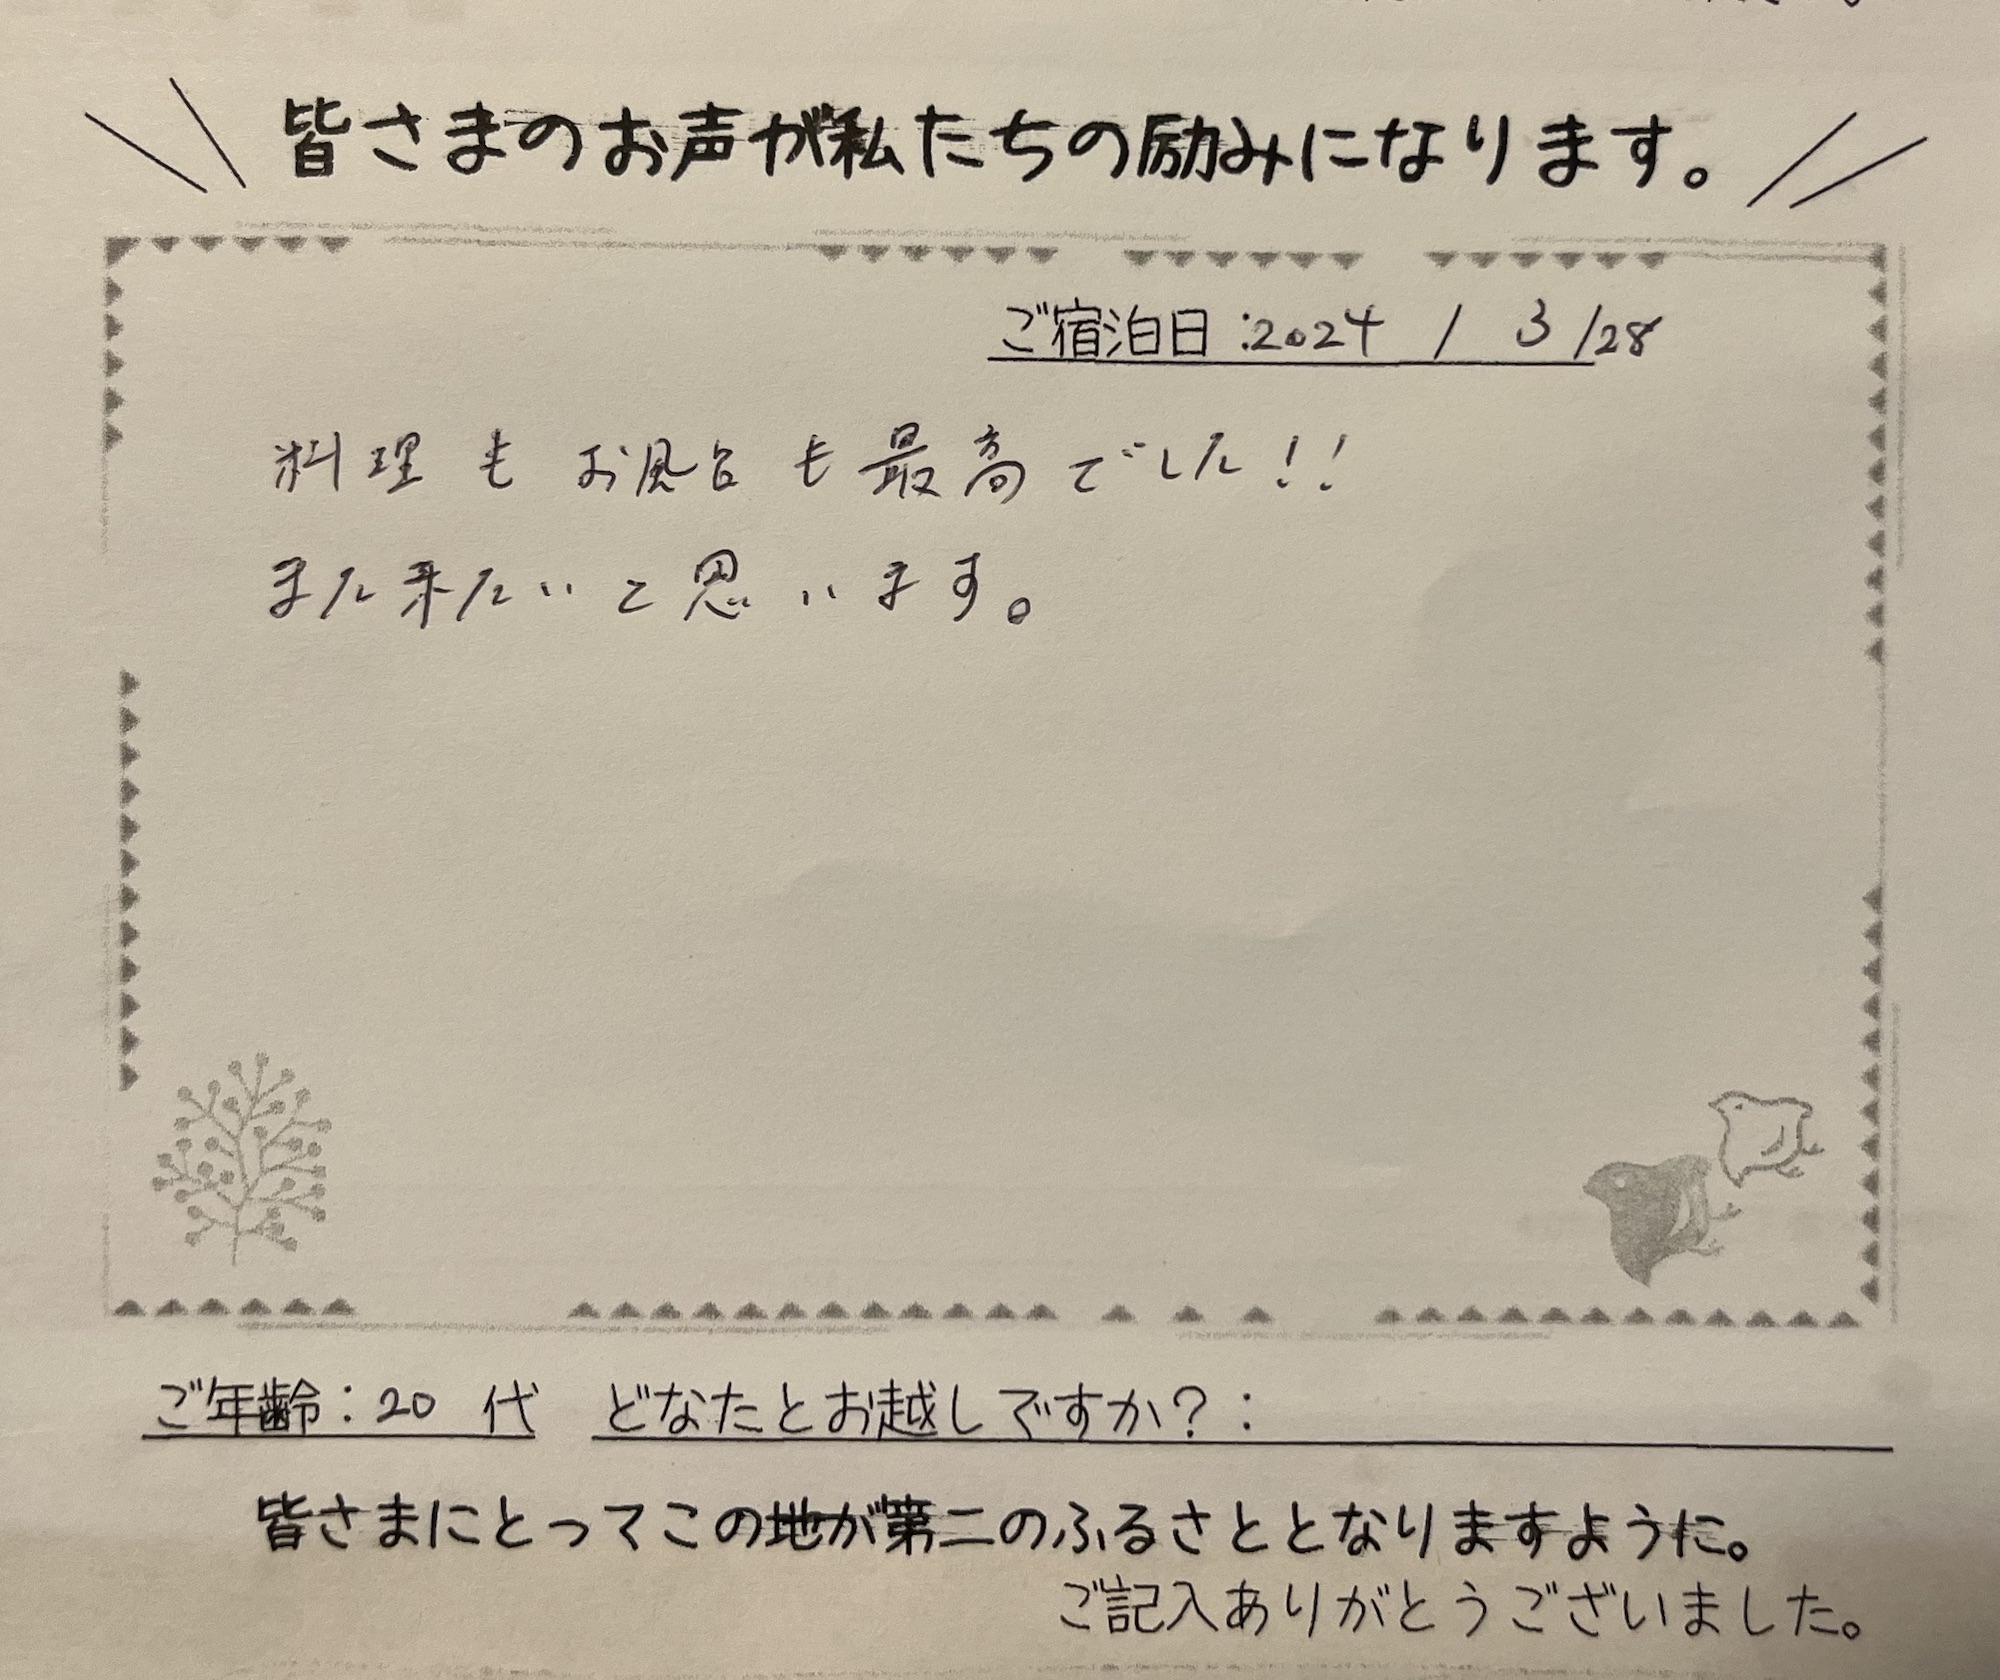 皆さまのお声が私たちの励みになります。
ご宿泊日:2024 / 3 /28
料理もお風呂も最高でした!!
また来たいと思います。
ご年齢:20 代 どなたとお越しですか?:
皆さまにとってこの地が第二のふるさととなりますように。
ご記入ありがとうございました。